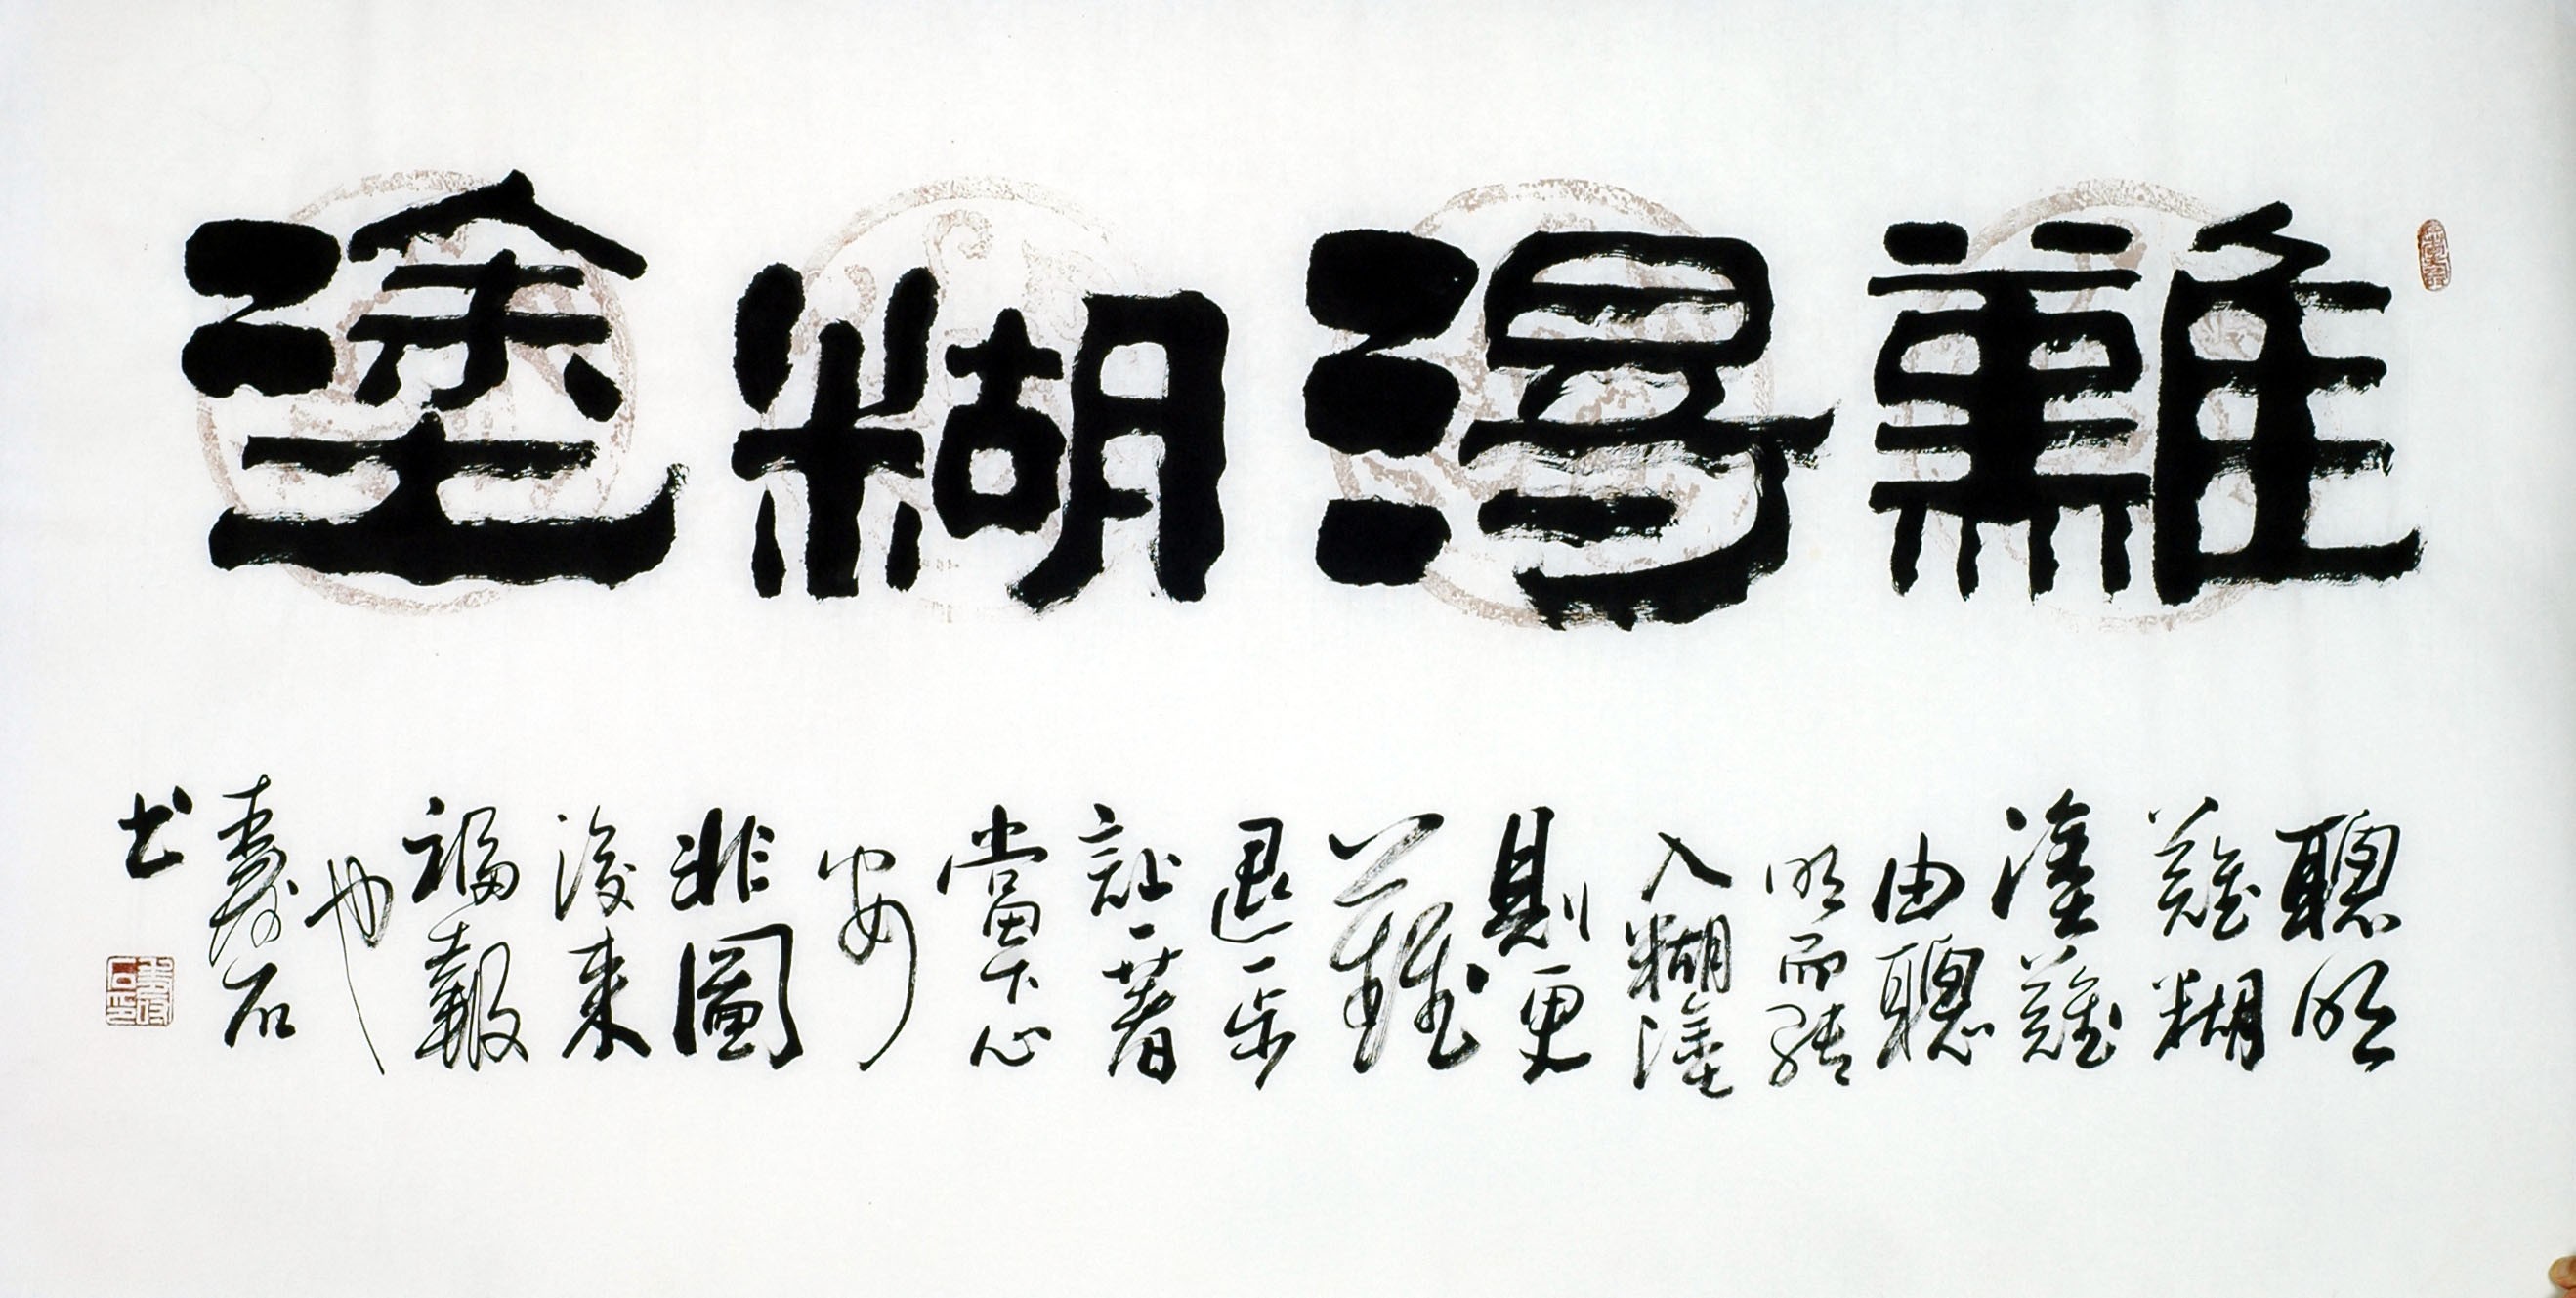 難淂糊塗
聰明
難糊
塗難
由聰
明而轉
入糊塗
則更
難
退一步
一著
當下心
安
非圖
後來
福報
也
壽石
书